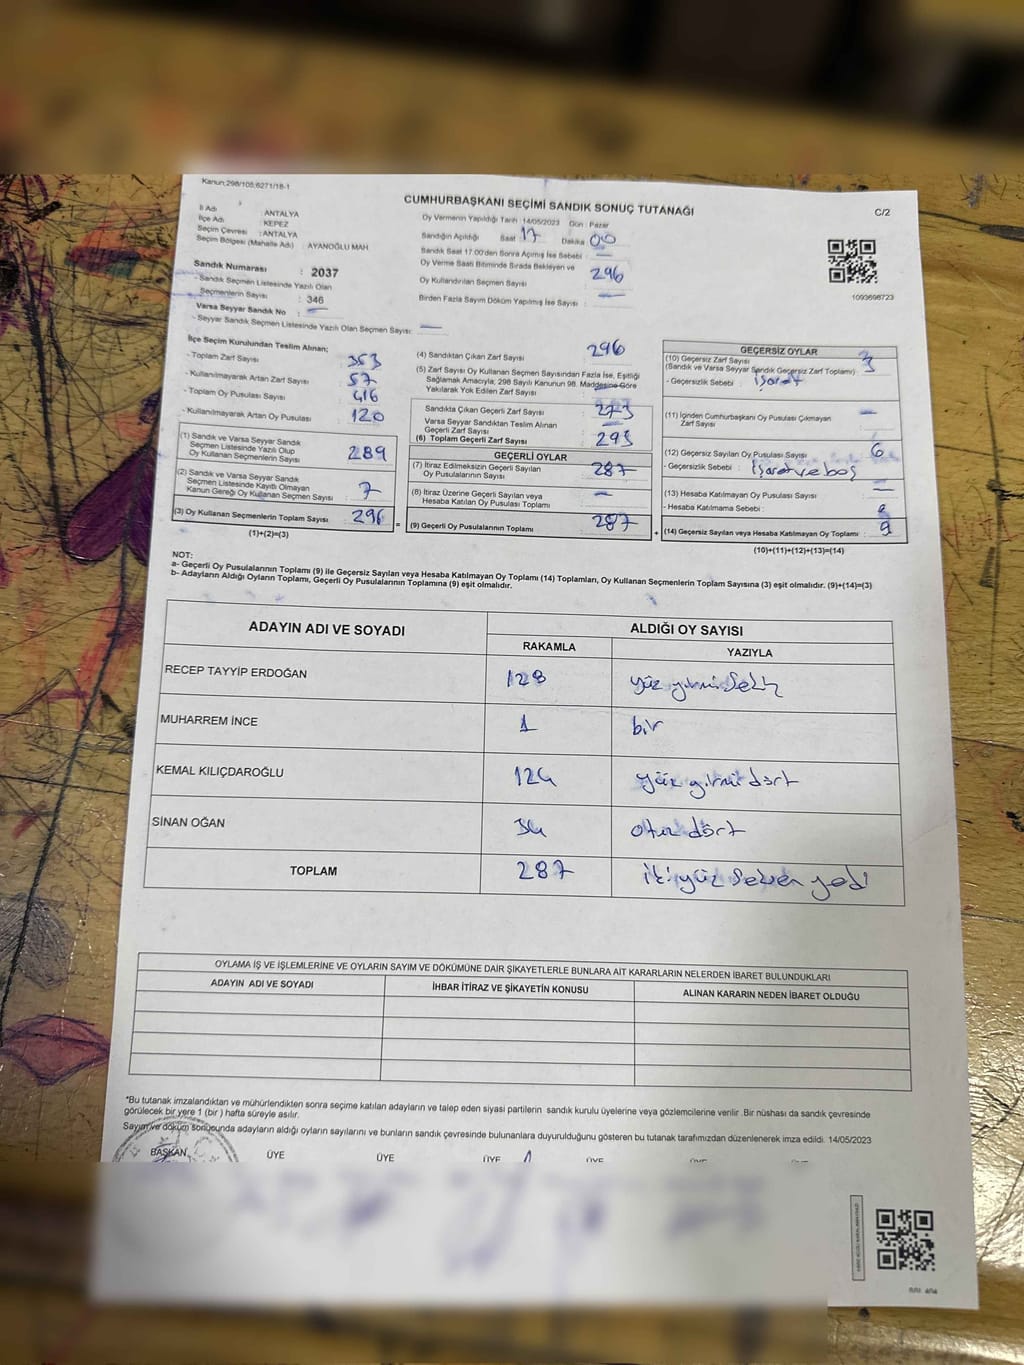 Kanun;298/105;6271/18-1
CUMHURBAŞKANI SEÇİMİ SANDIK SONUÇ TUTANAĞI
C/2
İl Adı : ANTALYA
İlçe Adı : KEPEZ
Seçim Çevresi : ANTALYA
Seçim Bölgesi (Mahalle Adı) : AYANOĞLU MAH
Oy Vermenin Yapıldığı Tarih : 14/05/2023 Gün : Pazar
Sandığın Açıldığı Saat : 17 Dakika : 00
Sandık Saat 17:00'den Sonra Açılmış İse Sebebi : —
Oy Verme Saati Bitiminde Sırada Bekleyen ve
Oy Kullandırılan Seçmen Sayısı : 296
Birden Fazla Sayım Döküm Yapılmış İse Sayısı : —
1093698723
Sandık Numarası : 2037
- Sandık Seçmen Listesinde Yazılı Olan
Seçmenlerin Sayısı : 346
Varsa Seyyar Sandık No : —
- Seyyar Sandık Seçmen Listesinde Yazılı Olan Seçmen Sayısı : —
İlçe Seçim Kurulundan Teslim Alınan;
- Toplam Zarf Sayısı : 353
- Kullanılmayarak Artan Zarf Sayısı : 57
- Toplam Oy Pusulası Sayısı : 416
- Kullanılmayarak Artan Oy Pusulası : 120
(1) Sandık ve Varsa Seyyar Sandık
Seçmen Listesinde Yazılı Olup
Oy Kullanan Seçmenlerin Sayısı : 289
(2) Sandık ve Varsa Seyyar Sandık
Seçmen Listesinde Kayıtlı Olmayan
Kanun Gereği Oy Kullanan Seçmen Sayısı : 7
(3) Oy Kullanan Seçmenlerin Toplam Sayısı : 296
(1)+(2)=(3)
(4) Sandıktan Çıkan Zarf Sayısı : 296
(5) Zarf Sayısı Oy Kullanan Seçmen Sayısından Fazla İse, Eşitliği
Sağlamak Amacıyla; 298 Sayılı Kanunun 98. Maddesine Göre
Yakılarak Yok Edilen Zarf Sayısı :
Sandıkta Çıkan Geçerli Zarf Sayısı :
Varsa Seyyar Sandıktan Teslim Alınan
Geçerli Zarf Sayısı :
(6) Toplam Geçerli Zarf Sayısı :
GEÇERLİ OYLAR
(7) İtiraz Edilmeksizin Geçerli Sayılan
Oy Pusulalarının Sayısı : 287
(8) İtiraz Üzerine Geçerli Sayılan veya
Hesaba Katılan Oy Pusulası Toplamı : —
= (9) Geçerli Oy Pusulalarının Toplamı : 287 +
GEÇERSİZ OYLAR
(10) Geçersiz Zarf Sayısı
(Sandık ve Varsa Seyyar Sandık Geçersiz Zarf Toplamı) : 3
- Geçersizlik Sebebi : işaret
(11) İçinden Cumhurbaşkanı Oy Pusulası Çıkmayan
Zarf Sayısı : —
(12) Geçersiz Sayılan Oy Pusulası Sayısı : 6
- Geçersizlik Sebebi : işaret ve boş
(13) Hesaba Katılmayan Oy Pusulası Sayısı : —
- Hesaba Katılmama Sebebi :
(14) Geçersiz Sayılan veya Hesaba Katılmayan Oy Toplamı : 9
(10)+(11)+(12)+(13)=(14)
NOT:
a- Geçerli Oy Pusulalarının Toplamı (9) ile Geçersiz Sayılan veya Hesaba Katılmayan Oy Toplamı (14) Toplamları, Oy Kullanan Seçmenlerin Toplam Sayısına (3) eşit olmalıdır. (9)+(14)=(3)
b- Adayların Aldığı Oyların Toplamı, Geçerli Oy Pusulalarının Toplamına (9) eşit olmalıdır.
ADAYIN ADI VE SOYADI ALDIĞI OY SAYISI
RAKAMLA YAZIYLA
RECEP TAYYİP ERDOĞAN 128 yüz yirmi sekiz
MUHARREM İNCE 1 bir
KEMAL KILIÇDAROĞLU 124 yüz yirmi dört
SİNAN OĞAN 34 otuz dört
TOPLAM 287 iki yüz seksen yedi
OYLAMA İŞ VE İŞLEMLERİNE VE OYLARIN SAYIM VE DÖKÜMÜNE DAİR ŞİKAYETLERLE BUNLARA AİT KARARLARIN NELERDEN İBARET BULUNDUKLARI
ADAYIN ADI VE SOYADI İHBAR İTİRAZ VE ŞİKAYETİN KONUSU ALINAN KARARIN NEDEN İBARET OLDUĞU
*Bu tutanak imzalandıktan ve mühürlendikten sonra seçime katılan adayların ve talep eden siyasi partilerin sandık kurulu üyelerine veya gözlemcilerine verilir. Bir nüshası da sandık çevresinde
görülecek bir yere 1 (bir) hafta süreyle asılır.
Sayım ve döküm sonucunda adayların aldığı oyların sayılarını ve bunların sandık çevresinde bulunanlara duyurulduğunu gösteren bu tutanak tarafımızdan düzenlenerek imza edildi. 14/05/2023
BAŞKAN ÜYE ÜYE ÜYE ÜYE